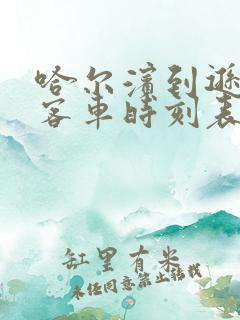 哈尔滨到逊
客车时刻表
缸里有米
未经同意禁止转载